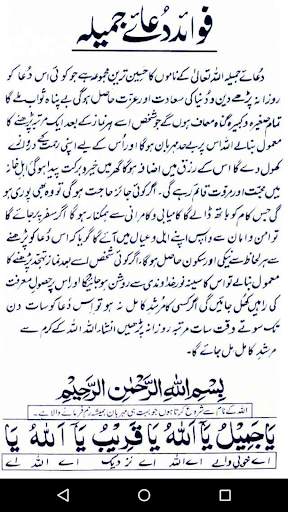 فوائد دُعائے جمیلہ
دُعائے جمیلہ اللہ تعالیٰ کے ناموں کا حسین ترین مجموعہ ہے جو کوئی اس دُعا کو
روزانہ پڑھے دین و دُنیا کی سعادت اور عزت حاصل ہوگی بے پناہ ثواب ملے گا
تمام صغیرہ و کبیرہ گناہ معاف ہوں گے جو شخص اسے ہر نماز کے بعد ایک مرتبہ پڑھنے کا
معمول بنالے اللہ اس پر بے حد مہربان ہوگا اور اُس کے لے اپنی رحمت کے دروازے
کھول دے گا اس کے رزق میں اضافہ ہوگا گھر میں خیر و برکت پیدا ہوگی اہل خانہ
میں محبت اور مروّت قائم رہے گی۔ اگر کوئی جائز حاجت ہوگی تو وہ بھی پوری ہو
گی جس کام کو ہاتھ ڈالے گا کامیابی و کامرانی سے ہمکنار ہوگا اگر سفر پر جائے گا
تو امن و امان سے واپس اپنے اہل و عیال میں آئے گا گویا کہ اس دُعا کو پڑھنے
سے ہر لحاظ سے نیکی اور سکون حاصل ہوگا۔ اگر کوئی شخص اسے بعد نماز تہجد پڑھنے کا
معمول بنالے تو اس کا سینہ نور خداوندی سے روشن ہو جائیگا اور اس پر حصولِ معرفت
کی راہیں کھل جائیں گی اگر کسی کا مرشد کامل نہ ہو تو اِس دُعا کو سات دن
تک سوتے وقت سات مرتبہ روزانہ پڑھیں انشاء اللہ اللہ کے کرم سے
مرشد کامل مل جائے گا۔
بِسْمِ اللهِ الرَّحْمٰنِ الرَّحِيْمِ
اللہ کے نام سے شروع کرتا ہوں جو بہت ہی مہربان ہمیشہ رحم فرمانے والا ہے۔
يَا جَمِيْلُ يَا اَللهُ يَا قَرِيْبُ يَا اَللهُ يَا
اے خوبی والے اے اللہ اے نزدیک اے اللہ اے